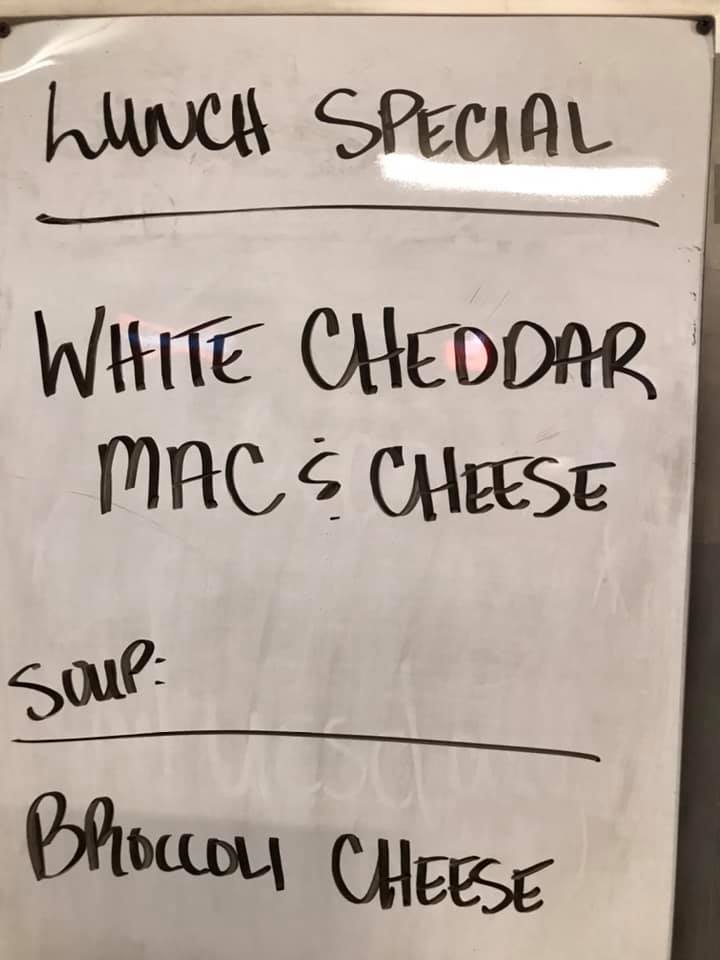 LUNCH SPECIAL
WHITE CHEDDAR
MAC & CHEESE
SOUP:
BROCCOLI CHEESE